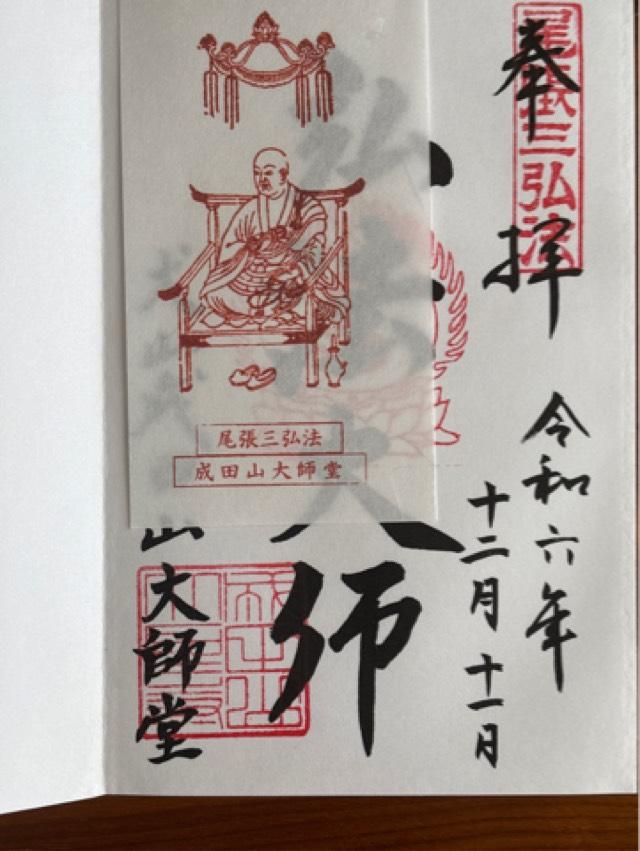 尾張三弘法
奉拝
令和六年
十二月十一日
弘法大師
山大師堂
尾張三弘法
成田山大師堂